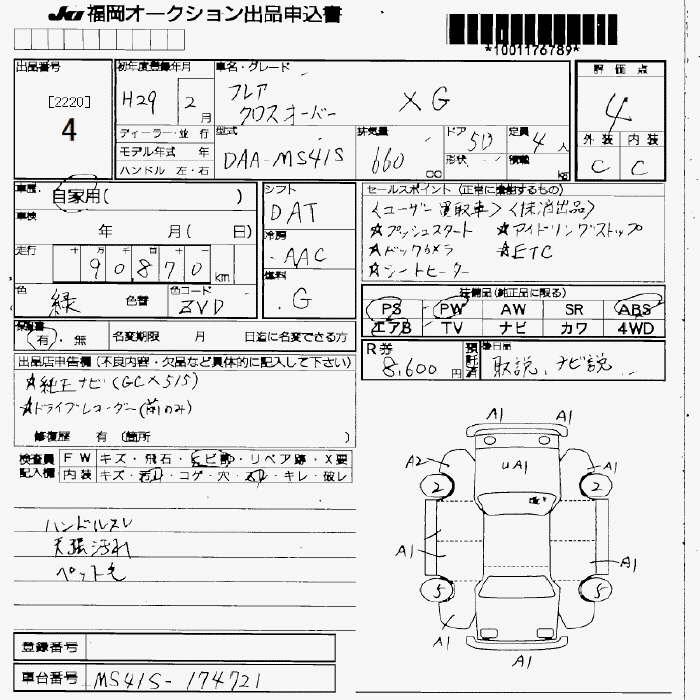 JU 福岡オークション出品申込書
*1001176789*
出品番号 初年度登録年月 車名・グレード 評価点
[2220]
4
H29 2月
フレア
クロスオーバー XG
4
ディーラー・並行 型式 排気量 ドア 5D 定員 4人 外装 内装
モデル年式 年 DAA-MS41S 660 cc 形状 積載 kg C C
ハンドル 左・右
車歴 自家用( )
車検 年 月( 日)
走行 90870km
色 緑 色替 色コード ZVD
シフト
DAT
冷房
AAC
燃料
G
セールスポイント(正常に機能するもの)
<ユーザー買取車><抹消出品>
☆プッシュスタート ☆アイドリングストップ
☆バックカメラ ☆ETC
☆シートヒーター
装備品(純正品に限る)
PS PW AW SR ABS
エアB TV ナビ カワ 4WD
保証書
有・無 名変期限 月 日迄に名変できる方
R券 8,600円 預託済 後日品 取説、ナビ説
出品店申告欄(不良内容・欠品など具体的に記入して下さい)
☆純正ナビ(GCX515)
☆ドライブレコーダー(前のみ)
修復歴 有(箇所 )
検査員 FW キズ・飛石・ヒビ割・リペア跡・X要
記入欄 内装 キズ・汚れ・コゲ・穴・スレ・キレ・破レ
ハンドルスレ
天張汚れ
ペット毛
A1 A1
A2 UA1 A1
2 2
A1 A1
5 5
A1 A1
A1
登録番号
車台番号 MS41S-174721